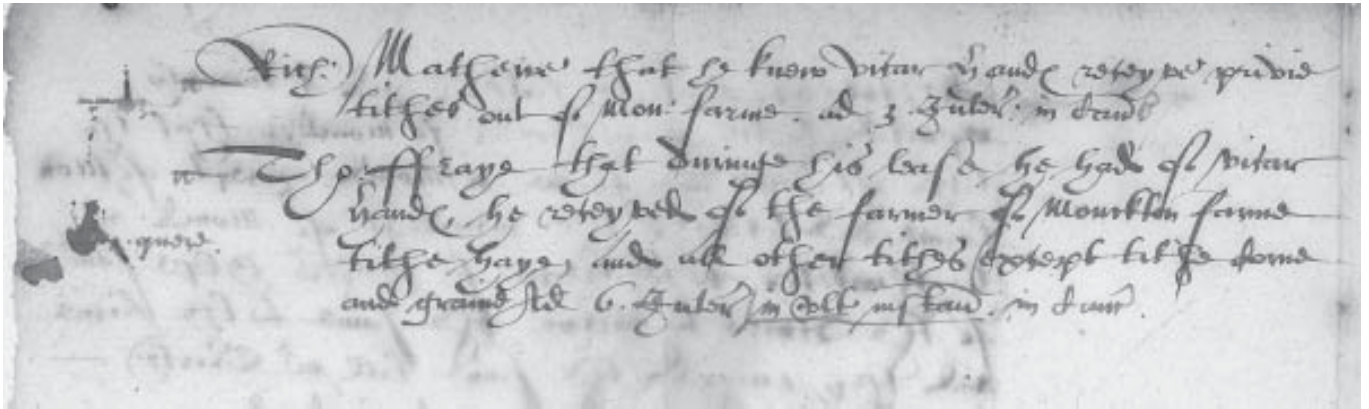 Rich: Mathewe that he knew vicar Hand receyve privie
tithes out of Mon: farme. ad 3. Inter: in
Tho: ffraye that duringe his lease he had of vicar
Hand, he receyved of the farmer of Monckton farme
quere.
tithe haye, and all other tithes except tithe corne
and graine Ad 6. Inter: in